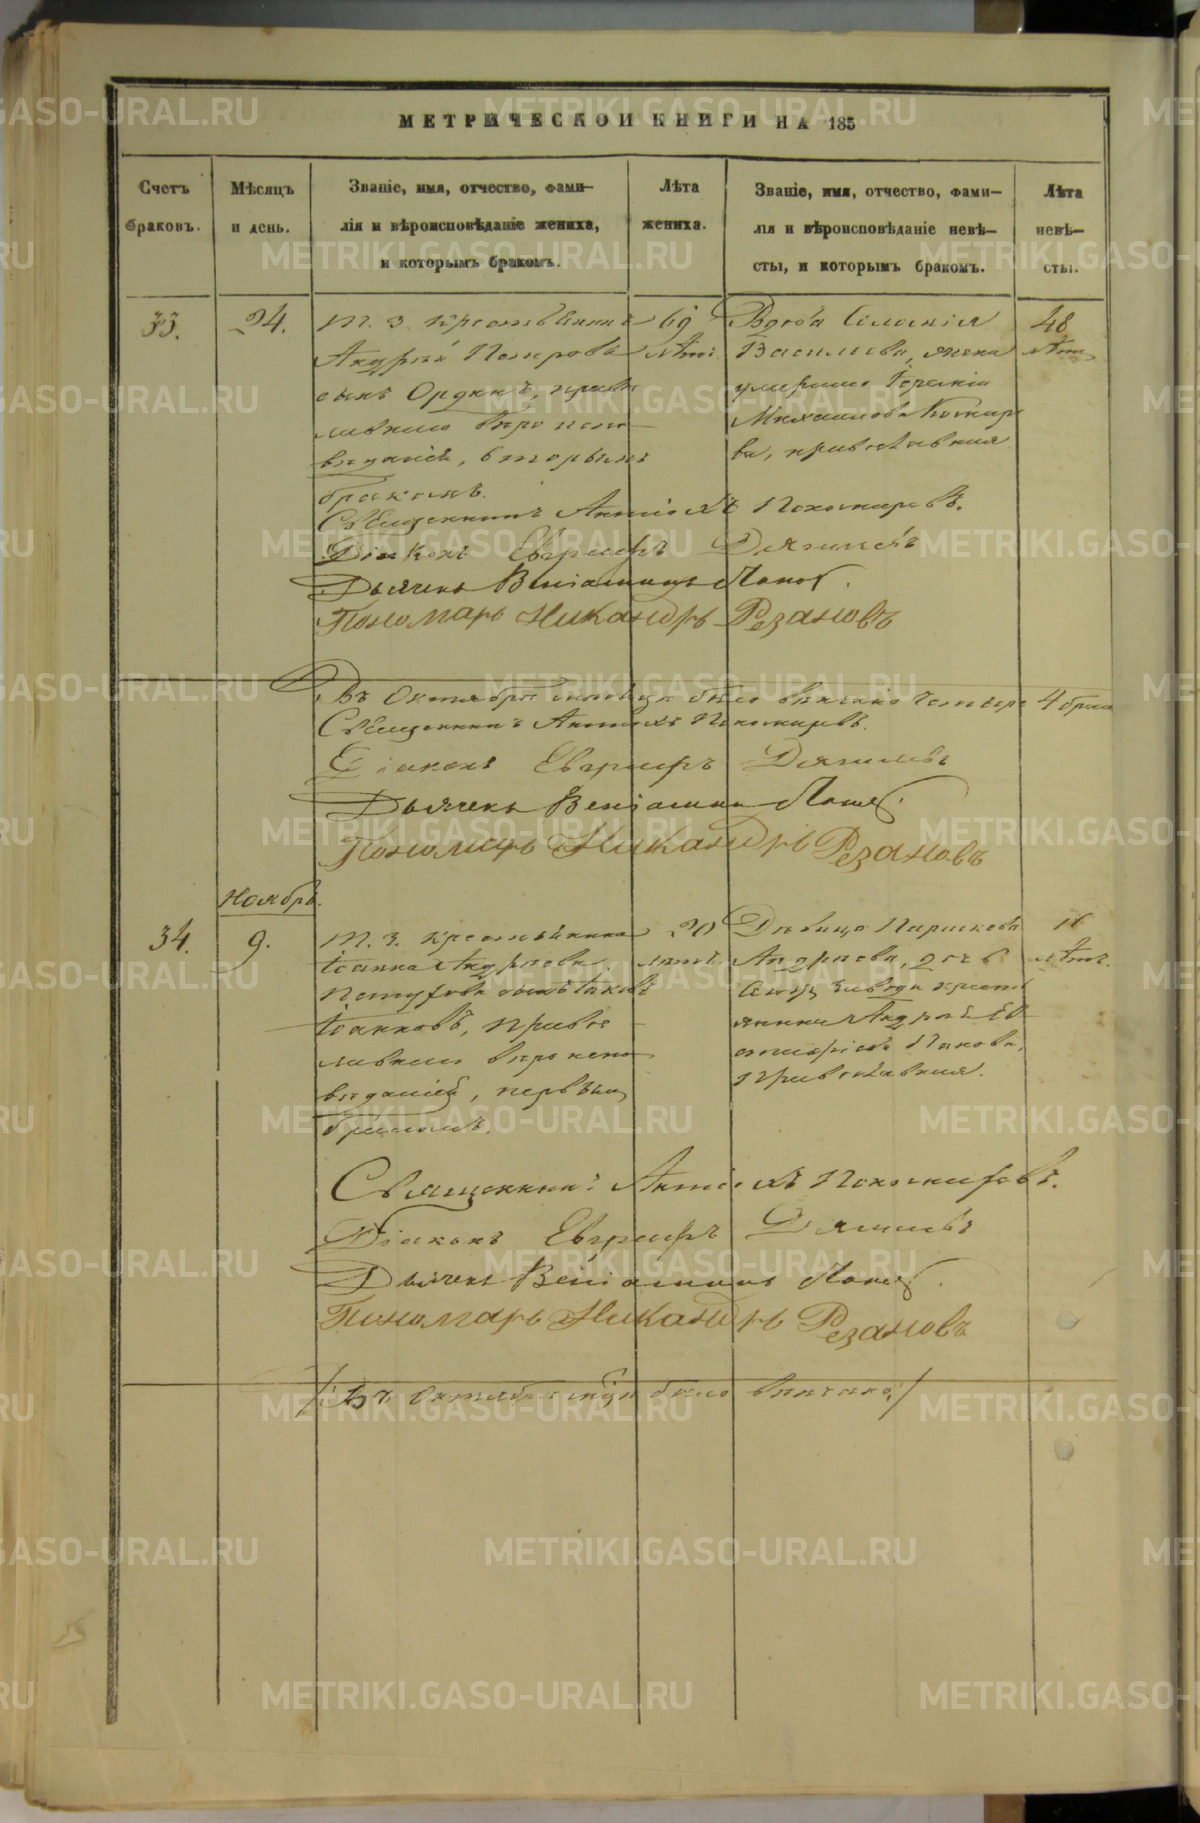 МЕТРИЧЕСКОЙ КНИГИ НА 185
Счетъ браковъ.
Мѣсяцъ и день.
Званіе, имя, отчество, фами-
лія и вѣроисповѣданіе жениха,
и которымъ бракомъ.
Лѣта
жениха.
Званіе, имя, отчество, фами-
лія и вѣроисповѣданіе невѣ-
сты, и которымъ бракомъ.
Лѣта
невѣ-
сты.
33.
24.
Т. З. крестьянинъ
Андрей Петровъ
сынъ православ
лавнаго вѣроиспо
вѣданія, вторымъ
бракомъ.
69
лѣтъ.
Вдова
Васильева, жена
умершаго
Михаилова
ва, православная
48
лѣтъ
Священникъ Антіохъ Пономаревъ.
Діаконъ Евграфъ Дягилевъ
Дьячекъ Веніаминъ Поповъ.
Пономарь Никандръ Резановъ
Въ Октябрѣ было вѣнчано четыре 4 брака
Священникъ Антіохъ Пономаревъ.
Діаконъ Евграфъ Дягилевъ
Дьячекъ Веніаминъ Поповъ.
Пономарь Никандръ Резановъ
Ноябрь.
34.
9.
Т. З. крестьянина
Іоанна Андреева
сынъ Іаковъ
Іоанновъ, правос
лавнаго вѣроиспо
вѣданія, первымъ
бракомъ.
20
лѣтъ.
Дѣвица Параскева
Андреева, дочь
завода крестья
янина Андрея
Панова,
православная.
лѣтъ.
Священникъ Антіохъ Пономаревъ.
Діаконъ Евграфъ Дягилевъ
Дьячекъ Веніаминъ Поповъ.
Пономарь Никандръ Резановъ
/Въ Октябрѣ было вѣнчано/
METRIKI.GASO-URAL.RU